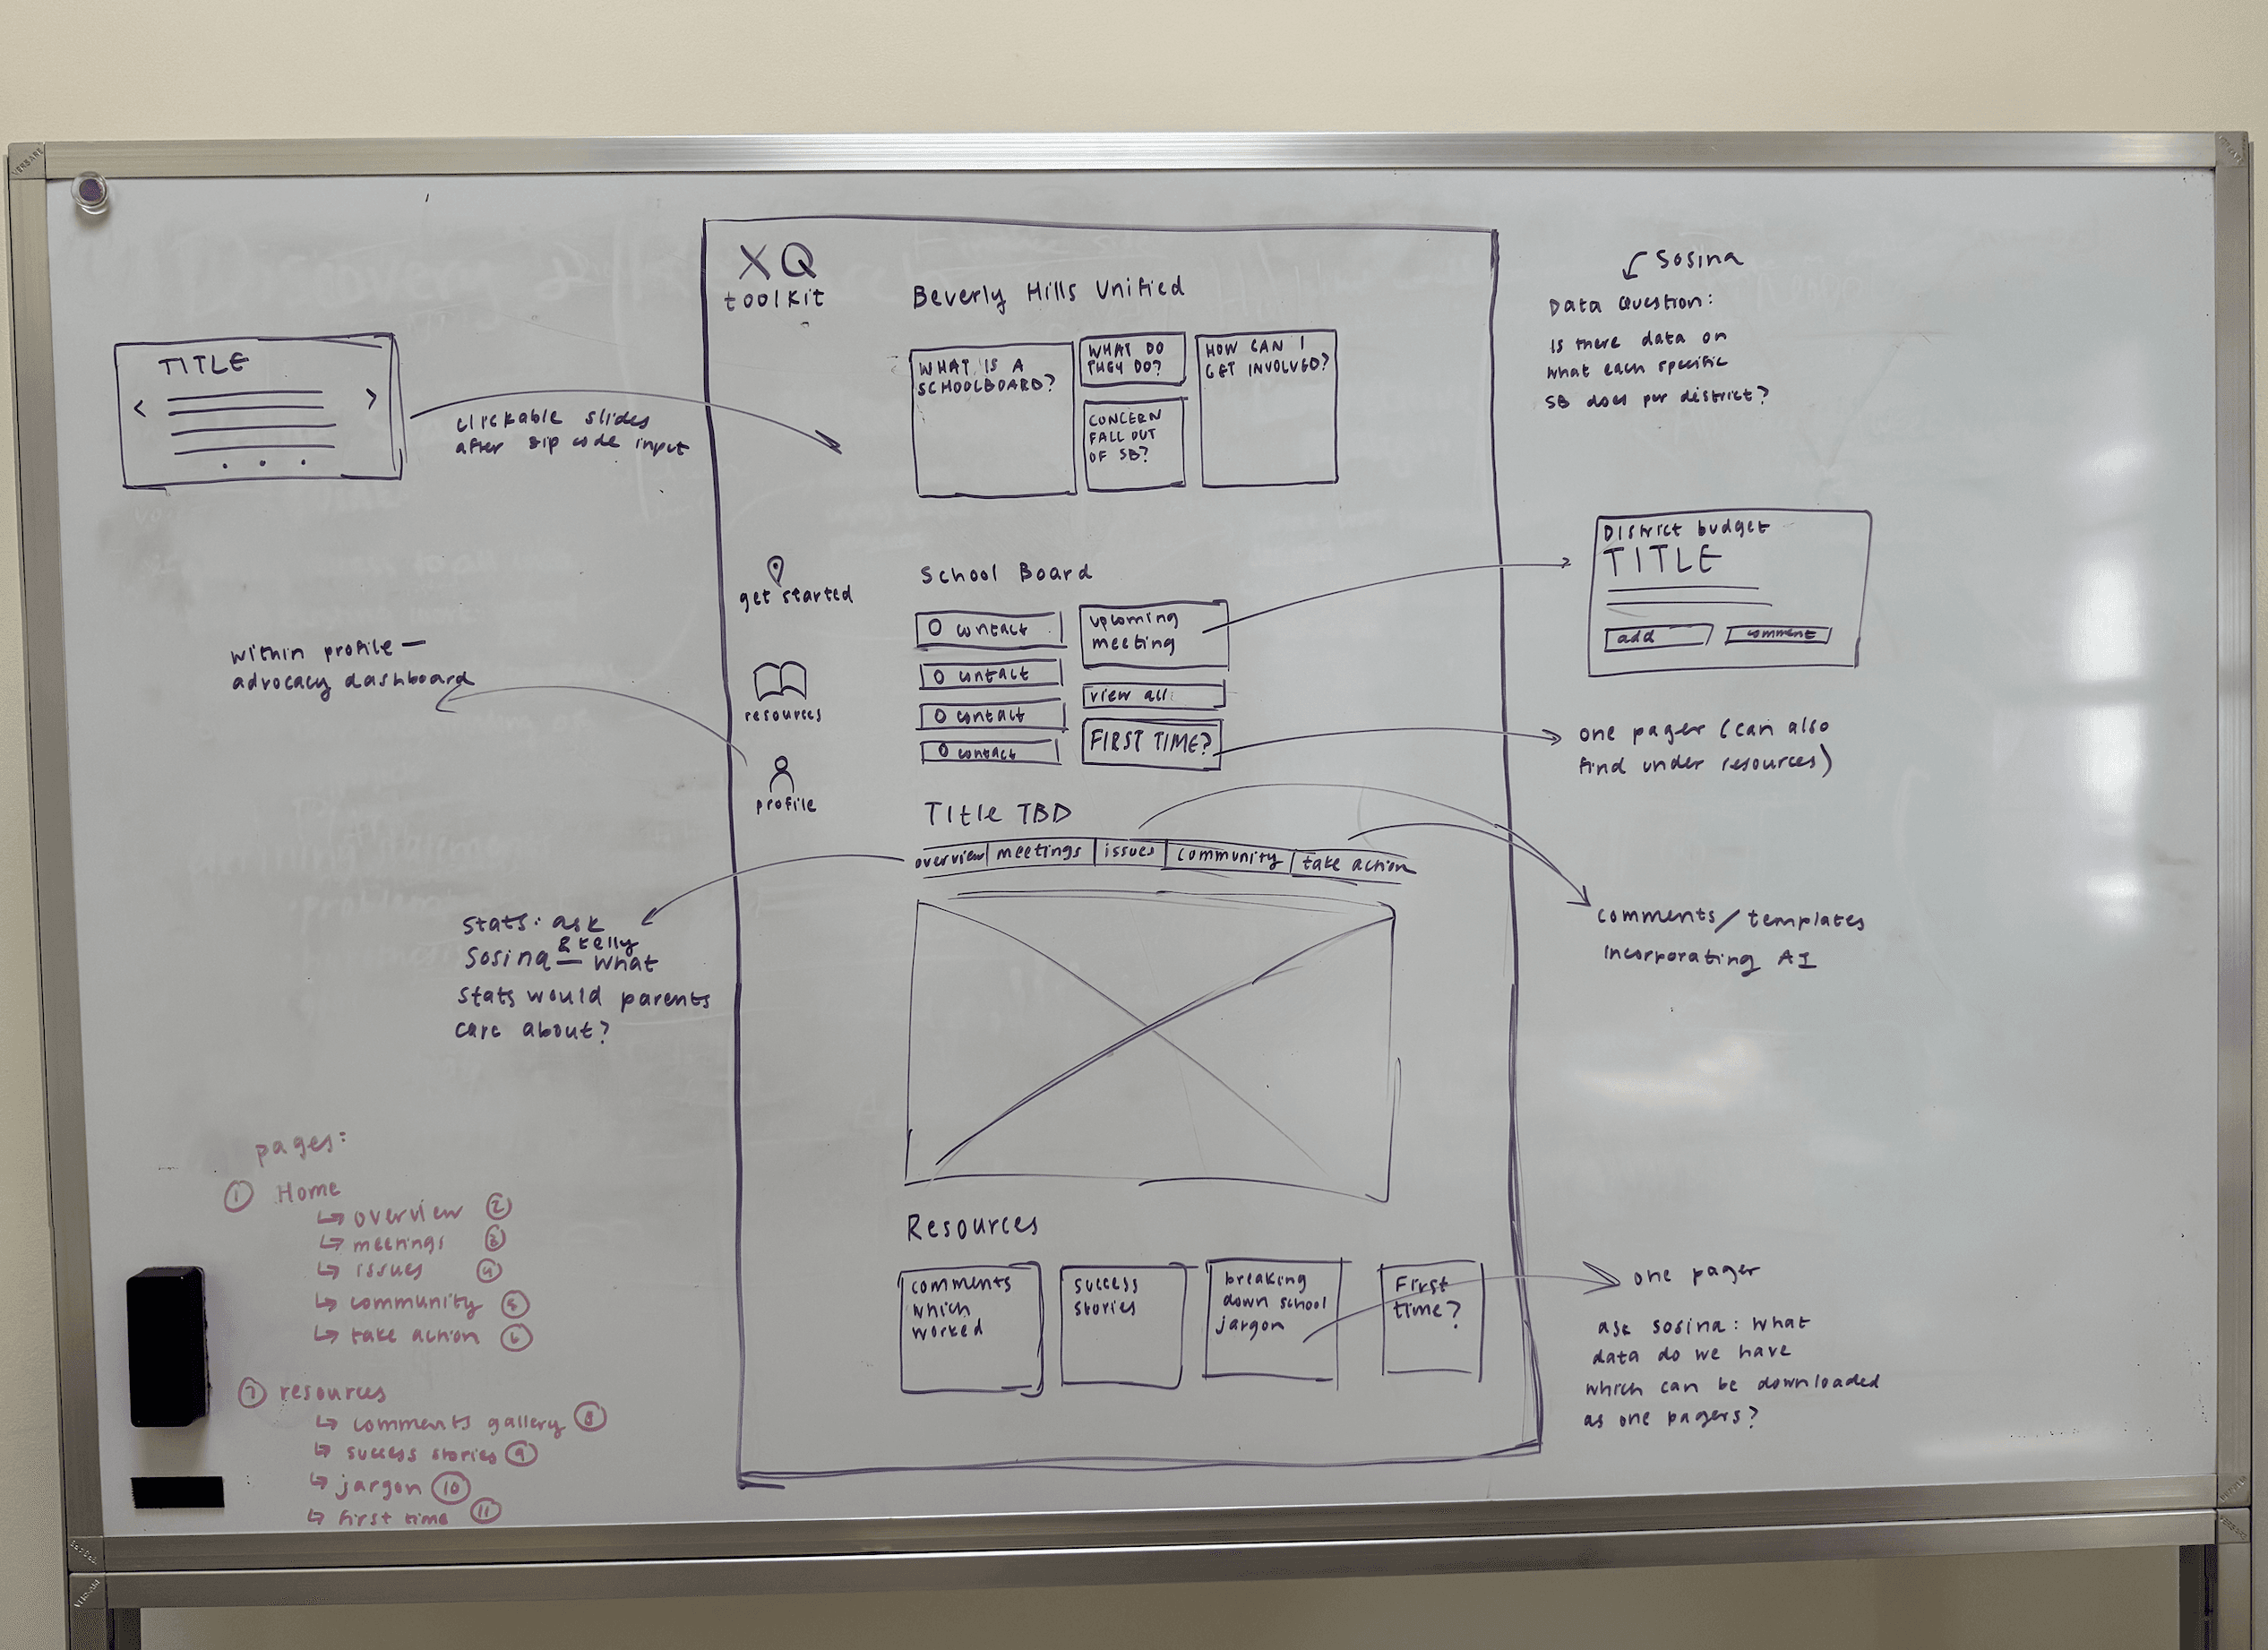 XQ
toolkit
Beverly Hills Unified
WHAT IS A
SCHOOLBOARD?
WHAT DO
THEY DO?
CONCERN
FALL OUT
OF SB?
HOW CAN I
GET INVOLVED?
TITLE
< >
clickable slides
after zip code input
Sosina
Data Question:
Is there data on
what each specific
SB does per district?
get started
resources
profile
within profile —
advocacy dashboard
School Board
O contact
O contact
O contact
O contact
upcoming
meeting
view all
FIRST TIME?
District budget
TITLE
add
comment
one pager (can also
find under resources)
Title TBD
overview
meetings
issues
community
take action
stats: ask
Sosina & Kelly
— what
stats would parents
care about?
comments/templates
incorporating AI
Resources
comments
which
worked
success
stories
breaking
down school
jargon
First
time?
one pager
ask sosina: what
data do we have
which can be downloaded
as one pagers?
pages:
① Home
↳ overview ②
↳ meetings ③
↳ issues ④
↳ community ⑤
↳ take action ⑥
⑦ resources
↳ comments gallery ⑧
↳ success stories ⑨
↳ jargon ⑩
↳ first time ⑪
VERSARE